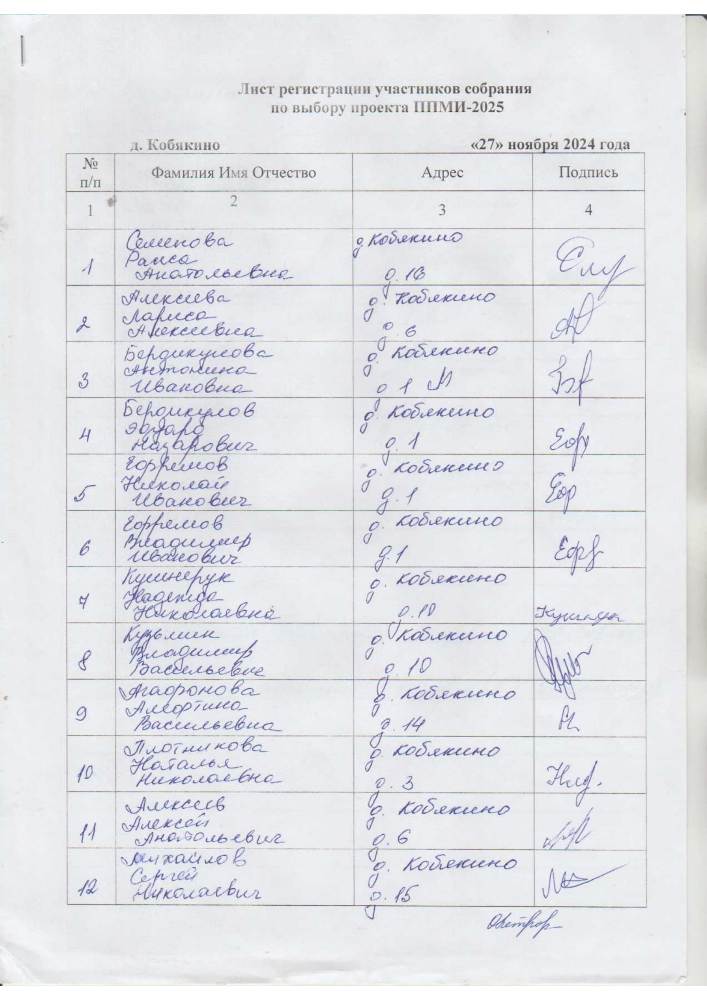 Лист регистрации участников собрания
по выбору проекта ППМИ-2025
д. Кобякино «27» ноября 2024 года
№ п/п Фамилия Имя Отчество Адрес Подпись
1 2 3 4
Семенова д Кобякино
Раиса
1 Анатольевна д. 16
Алексеева д. Кобякино
Лариса
2 Алексеевна д 6
Бердикулова д. Кобякино
Антонина
3 Ивановна д 1
Бердикулов д Кобякино
Эдуард
4 Назарович д. 1
Ефремов д. Кобякино
Николай
5 Иванович д. 1
Ефремов д. Кобякино
Владимир
6 Иванович д. 1
Кушнерук д. Кобякино
Надежда
7 Николаевна д. 10
Кузьмин д. Кобякино
Владимир
8 Васильевич д. 10
Агафонова д. Кобякино
Алефтина
9 Васильевна д. 14
Плотникова д. Кобякино
Наталья
10 Николаевна д. 3
Алексеев д. Кобякино
Алексей
11 Анатольевич д. 6
Михайлов д. Кобякино
Сергей
12 Николаевич д. 15